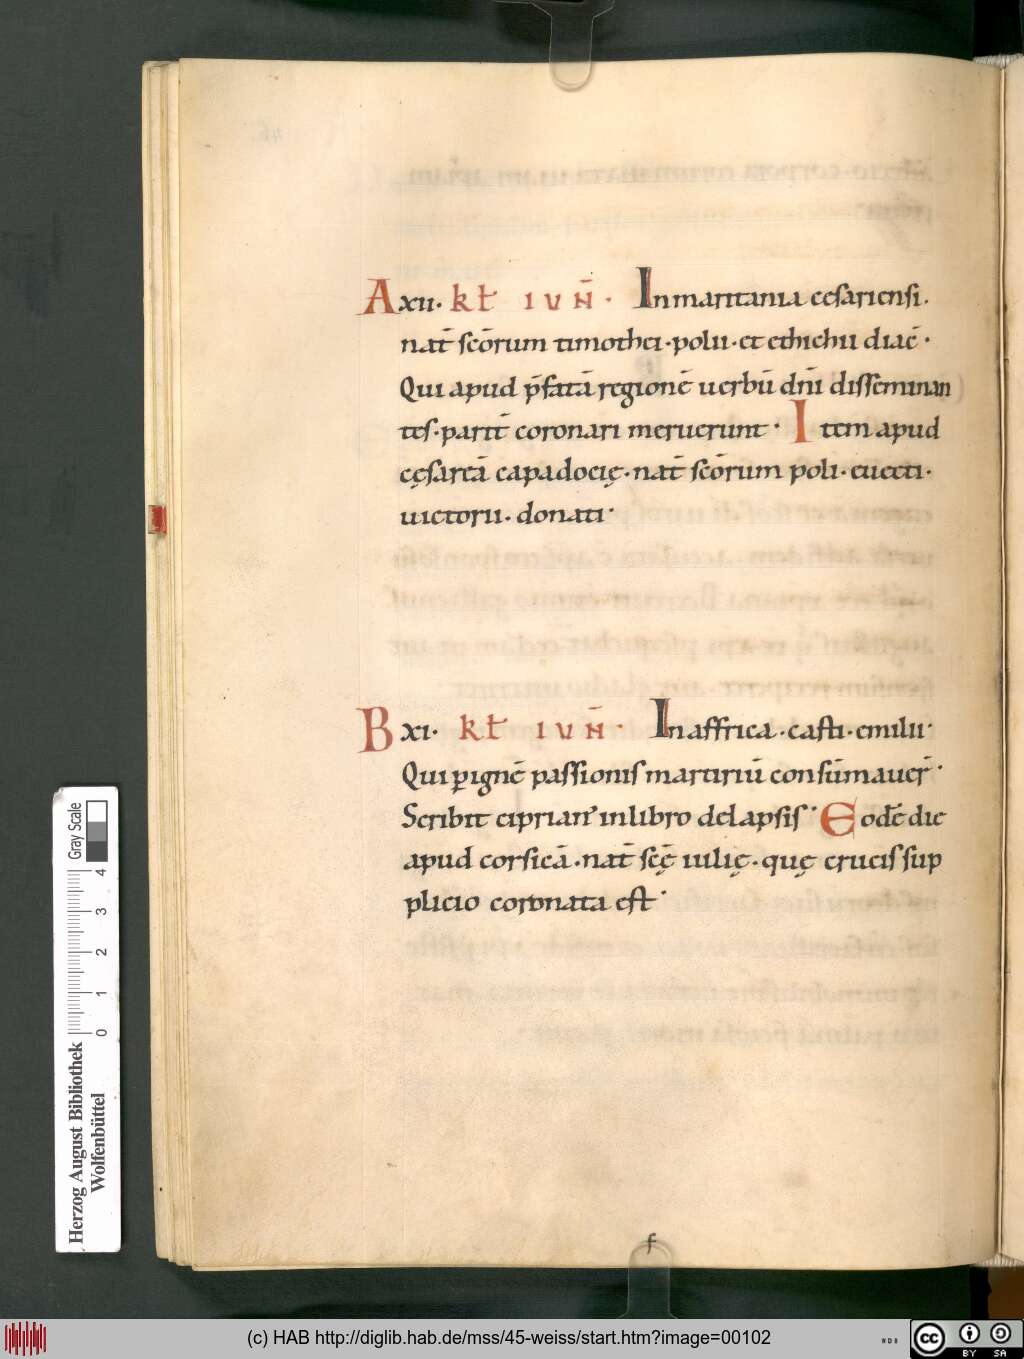 A xii· kł iuñ· In maritania cesariensi.
nat̄ scōrum timothei·polii·et ethichii diac̄·
Qui apud p̄fatā regionē uerbū dn̄i dissēminan
tes·parit̄ coronari meruerunt· Item apud
cęsareā capadocię·nat̄ scōrum poli·euceti·
uictorii·donati·
B xi· kł iuñ· In affrica·casti·emilii·
Qui ꝑ ignē passionis martiriū consūmauer̄·
Scribit ciprian᾿ in libro de lapsis· Eodē die
apud corsicā·nat̄ scę̄ iulię·quę crucis sup
plicio coronata est·
f
Gray Scale
0 1 2 3 4
Herzog August Bibliothek
Wolfenbüttel
(c) HAB http://diglib.hab.de/mss/45-weiss/start.htm?image=00102
WDB
cc
BY SA